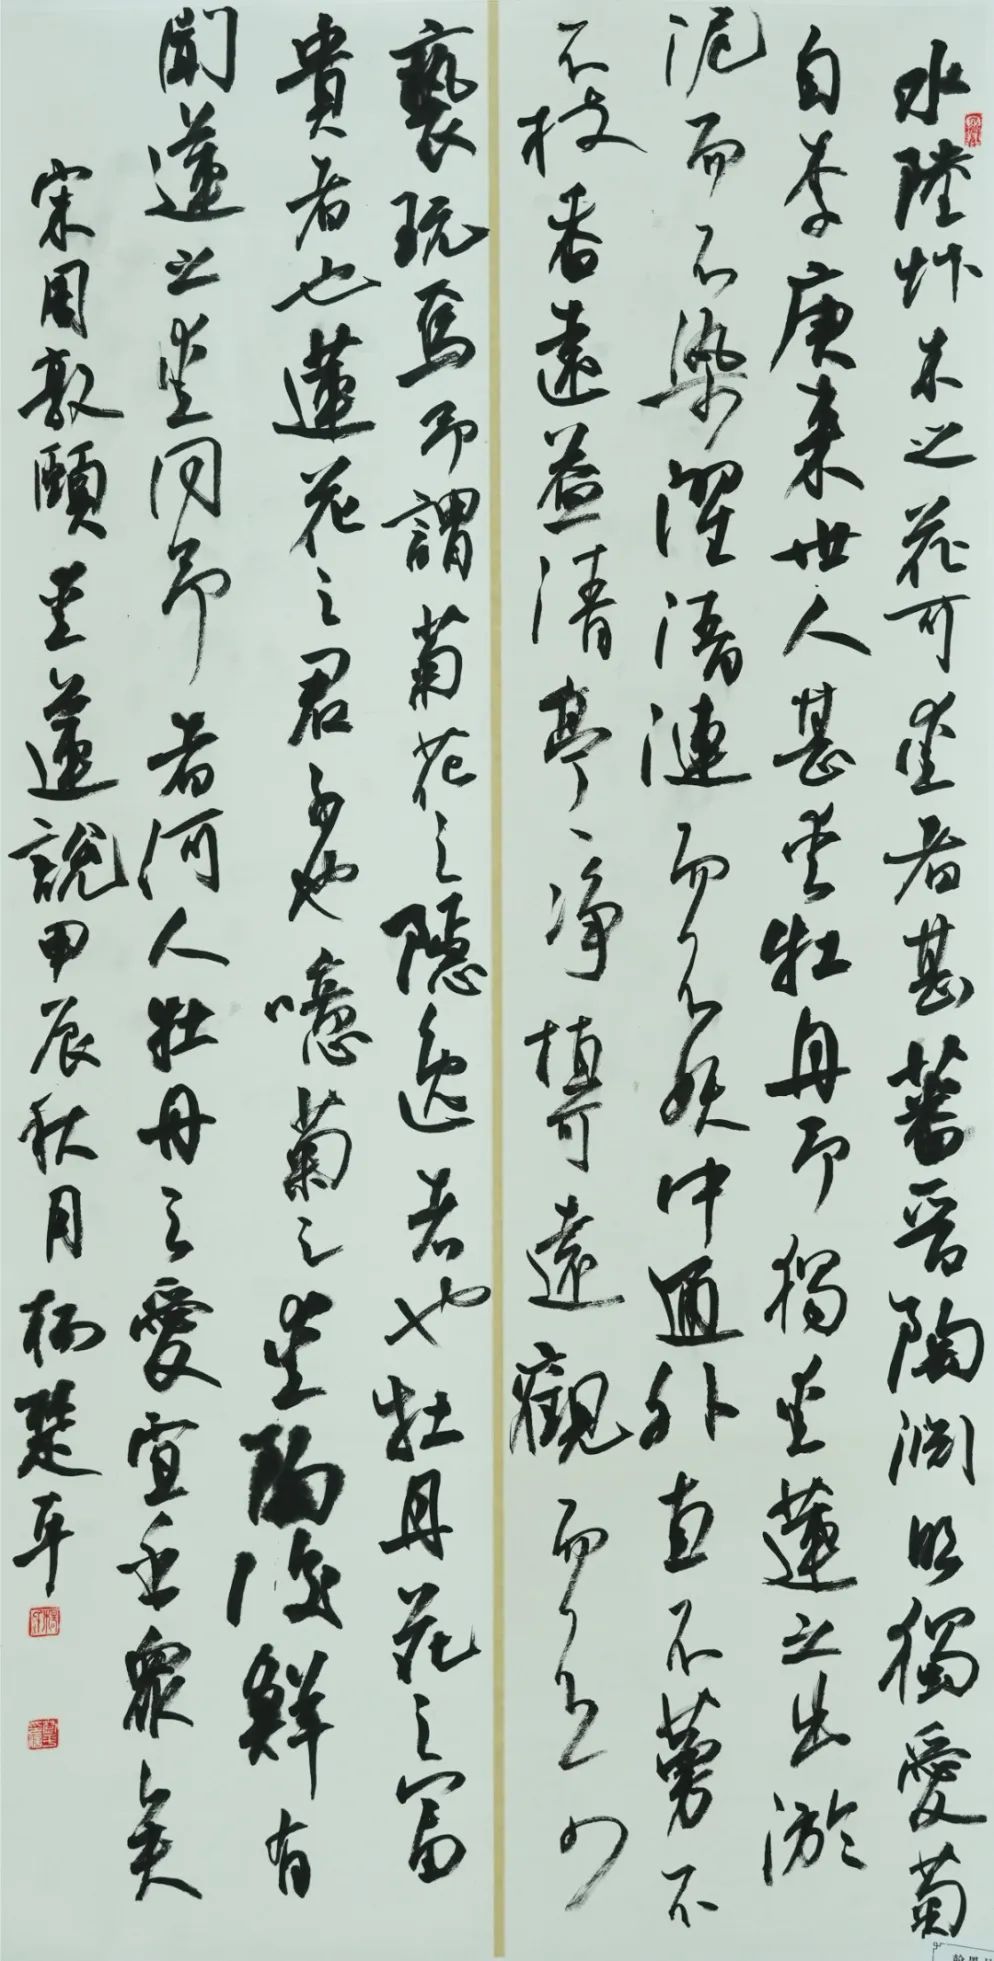 水陸艸木之花可愛者甚蕃晉陶淵明獨愛菊
自李唐来世人甚愛牡丹予獨愛蓮之出淤
泥而不染濯清漣而不妖中通外直不蔓不
不枝香遠益清亭、淨植可遠觀而不可
褻玩焉予謂菊花之隱逸者也牡丹花之富
貴者也蓮花之君子也噫菊之愛陶後鮮有
聞蓮之愛同予者何人牡丹之愛宜乎眾矣
宋周敦頤愛蓮說甲辰秋月